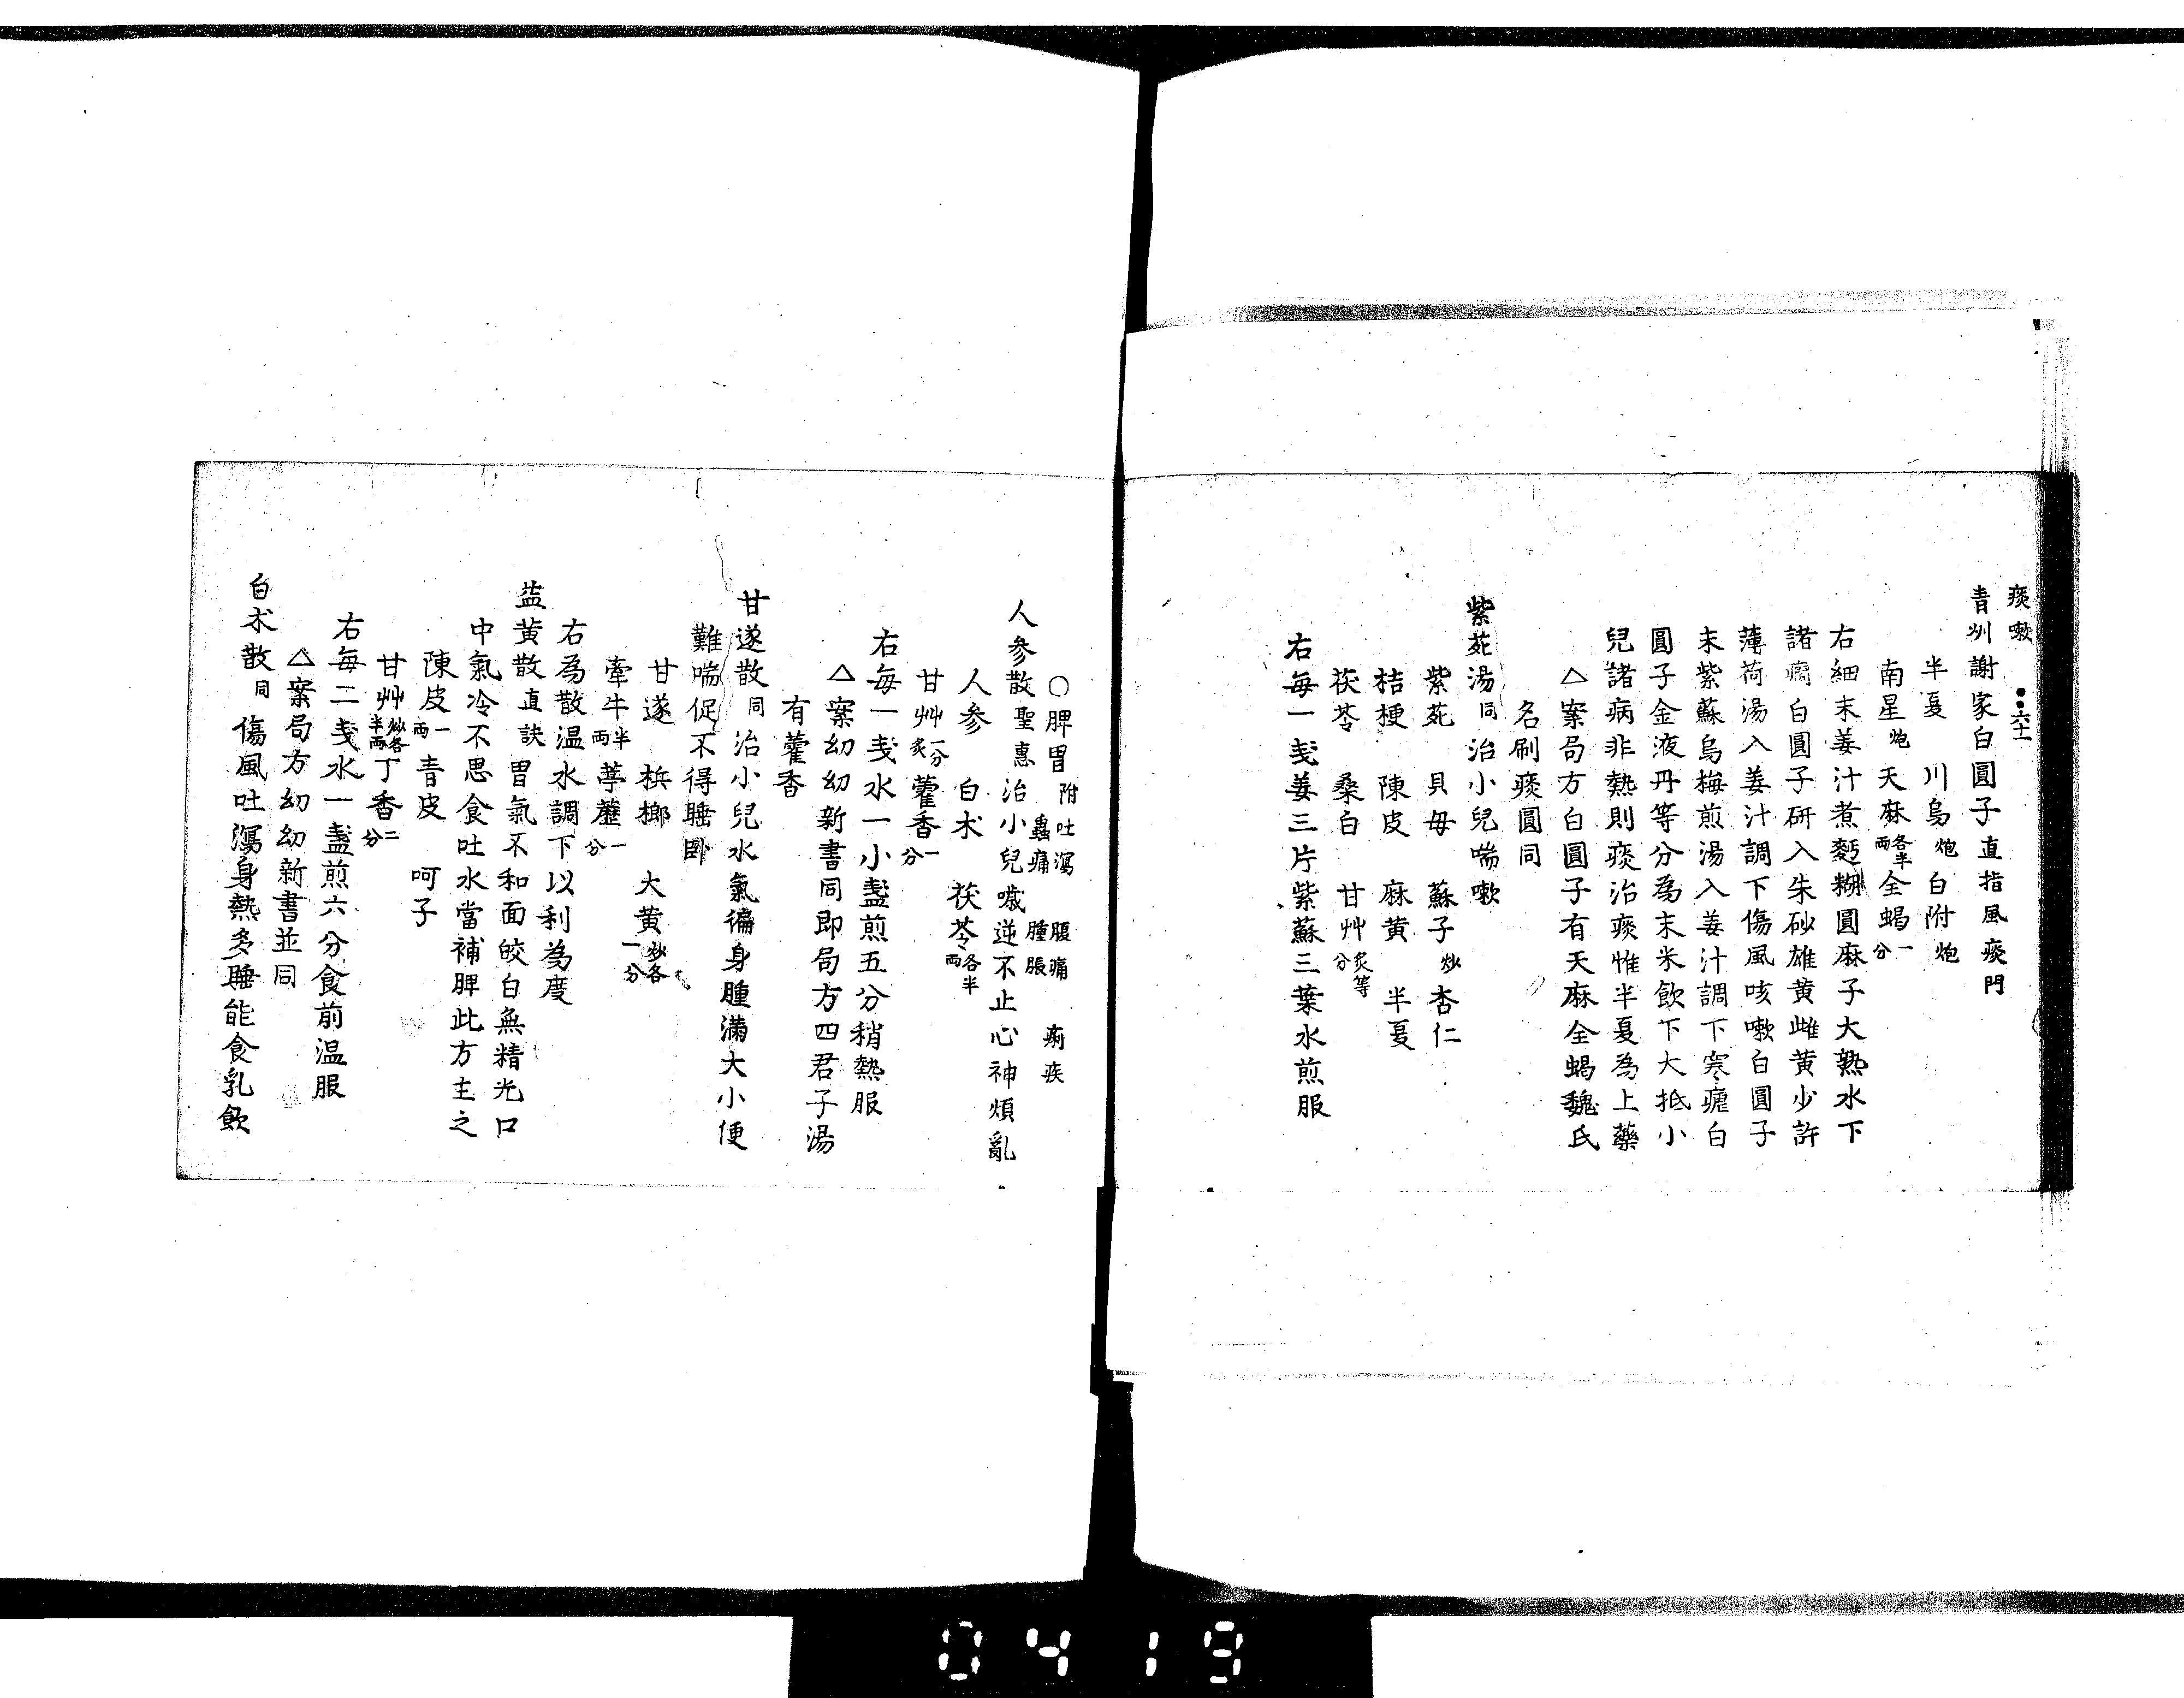 痰嗽 六十二
青州謝家白圓子直指風痰門
半夏 川烏炮白附炮
南星炮天麻各半兩全蝎一分
右細末姜汁煮麪糊圓麻子大熟水下
諸癇白圓子研入朱砂雄黄雌黄少許
薄荷湯入姜汁調下傷風咳嗽白圓子
末紫蘇烏梅煎湯入姜汁調下寒瘧白
圓子金液丹等分為末米飲下大抵小
兒諸病非熱則痰治痰惟半夏為上藥
△案局方白圓子有天麻全蝎魏氏
名刷痰圓同
紫菀湯同治小兒喘嗽
紫菀 貝母 蘇子炒杏仁
桔梗 陳皮 麻黄 半夏
茯苓 桑白 甘艸炙等分
右每一戔姜三片紫蘇三葉水煎服
○脾胃附吐瀉 腹痛 痢疾
蟲痛 腫脹
人参散聖惠治小兒噦逆不止心神煩亂
人参 白朮 茯苓各半兩
甘艸一分炙藿香一分
右每一戔水一小盞煎五分稍熱服
△案幼幼新書同即局方四君子湯
有藿香
甘遂散同治小兒水氣徧身腫滿大小便
難喘促不得睡臥
甘遂 梹榔 大黄炒各一分
牽牛半兩葶藶一分
右為散温水調下以利為度
益黄散直訣胃氣不和面皎白無精光口
中氣冷不思食吐水當補脾此方主之
陳皮一兩青皮 呵子
甘艸炒各半兩丁香二分
右每二戔水一盞煎六分食前温服
△案局方幼幼新書並同
白朮散同傷風吐瀉身熱多睡能食乳飲
0419